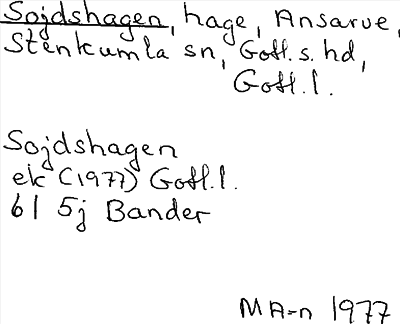 Sojdshagen, hage, Ansarve,
Stenkumla sn, Gotl. s. hd,
Gotl. l.
Sojdshagen
ek (1977) Gotl. l.
6 I 5j Bander
MA-n 1977